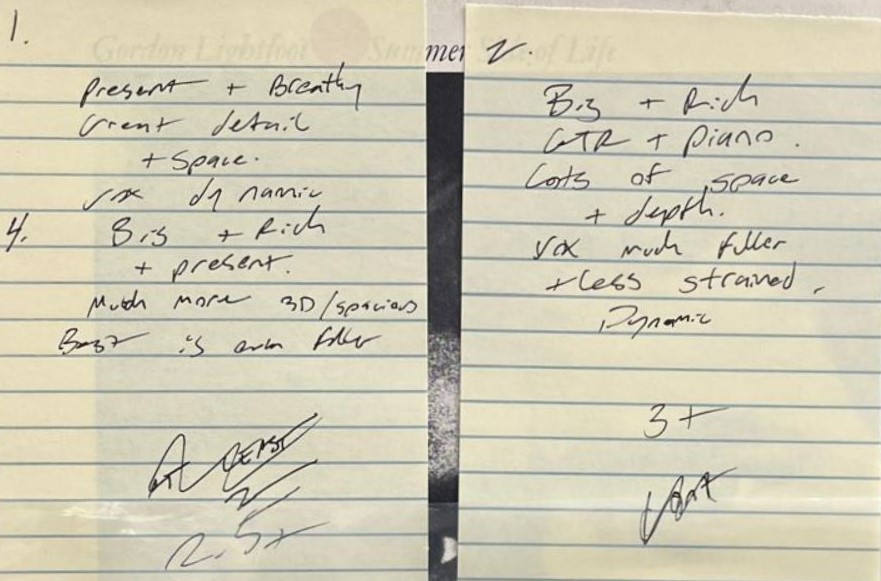 Gordon Lightfoot Summer Side of Life
1.
Present + Breathy
Great detail
+ space.
vox dynamic
4. Big + Rich
+ present.
Much more 3D/spacious
Bass is even fuller
AT LEAST
2
2.5+
2.
Big + Rich
GTR + piano.
Lots of space
+ depth.
vox much fuller
+ less strained.
Dynamic
3+